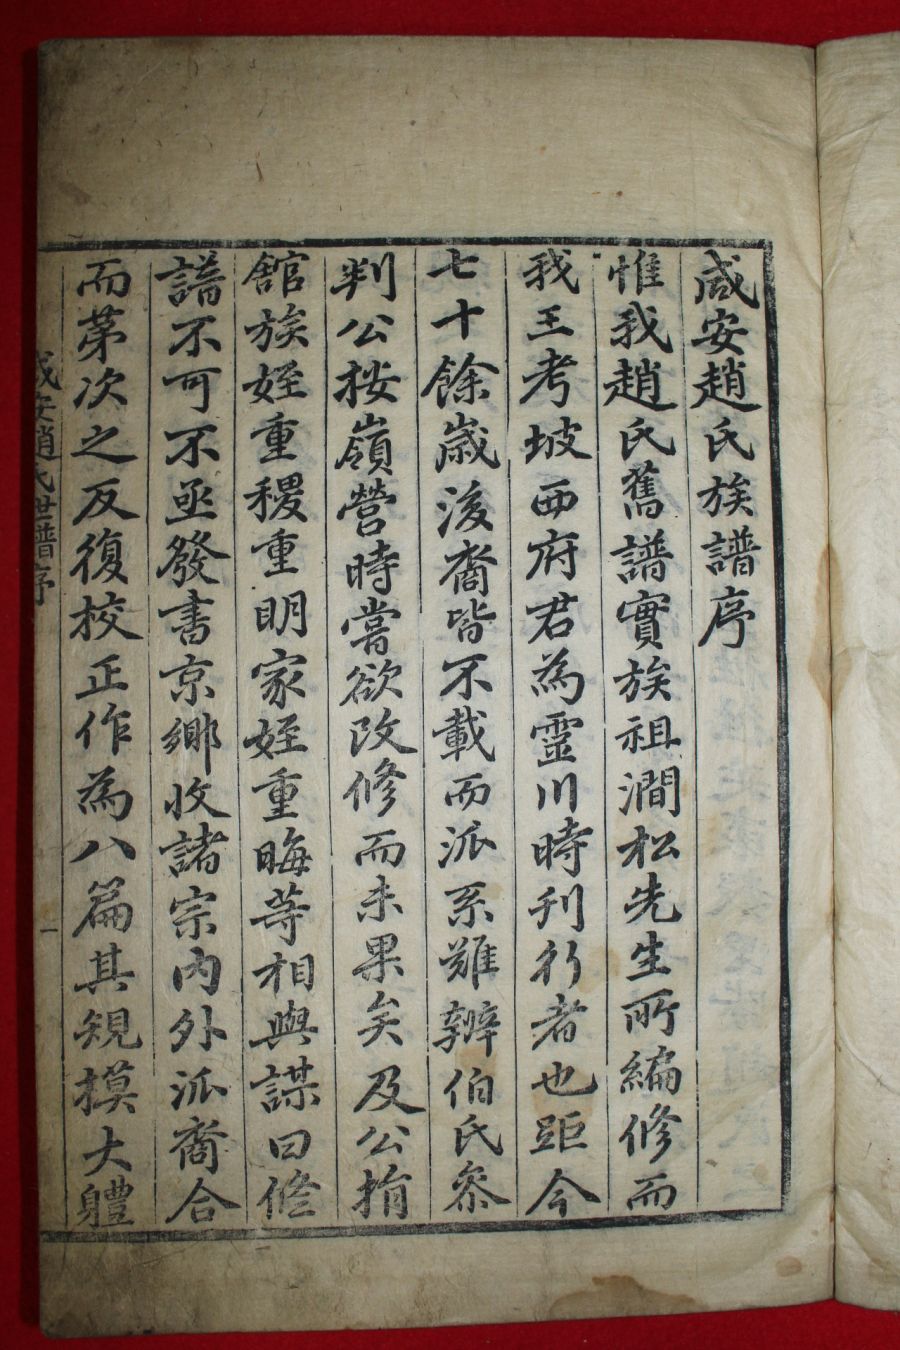 咸安趙氏族譜序
惟我趙氏舊譜實族祖澗松先生所編修而
我王考坡西府君為靈川時刊行者也距今
七十餘歲後裔皆不載而派系難辨伯氏叅
判公按嶺營時嘗欲改修而未果矣及公捐
舘族姪重稷重明家姪重晦等相與謀曰修
譜不可不亟發書京鄉收諸宗內外派裔合
而第次之反復校正作為八篇其規模大軆
咸安趙氏世譜序 一